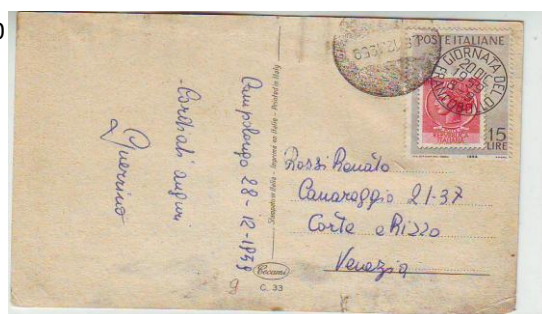 POSTE ITALIANE
GIORNATA DEL
20 DIC
1959
15
LIRE
12.1959
Campolongo 28-12-1959
-Cordiali auguri
Guerrino
Stampato in Italia - Imprimé en Italie - Printed in Italy
Rossi Renato
Canareggio 21-37
Corte e Rizzo
Venezia
Cecami
G. 33